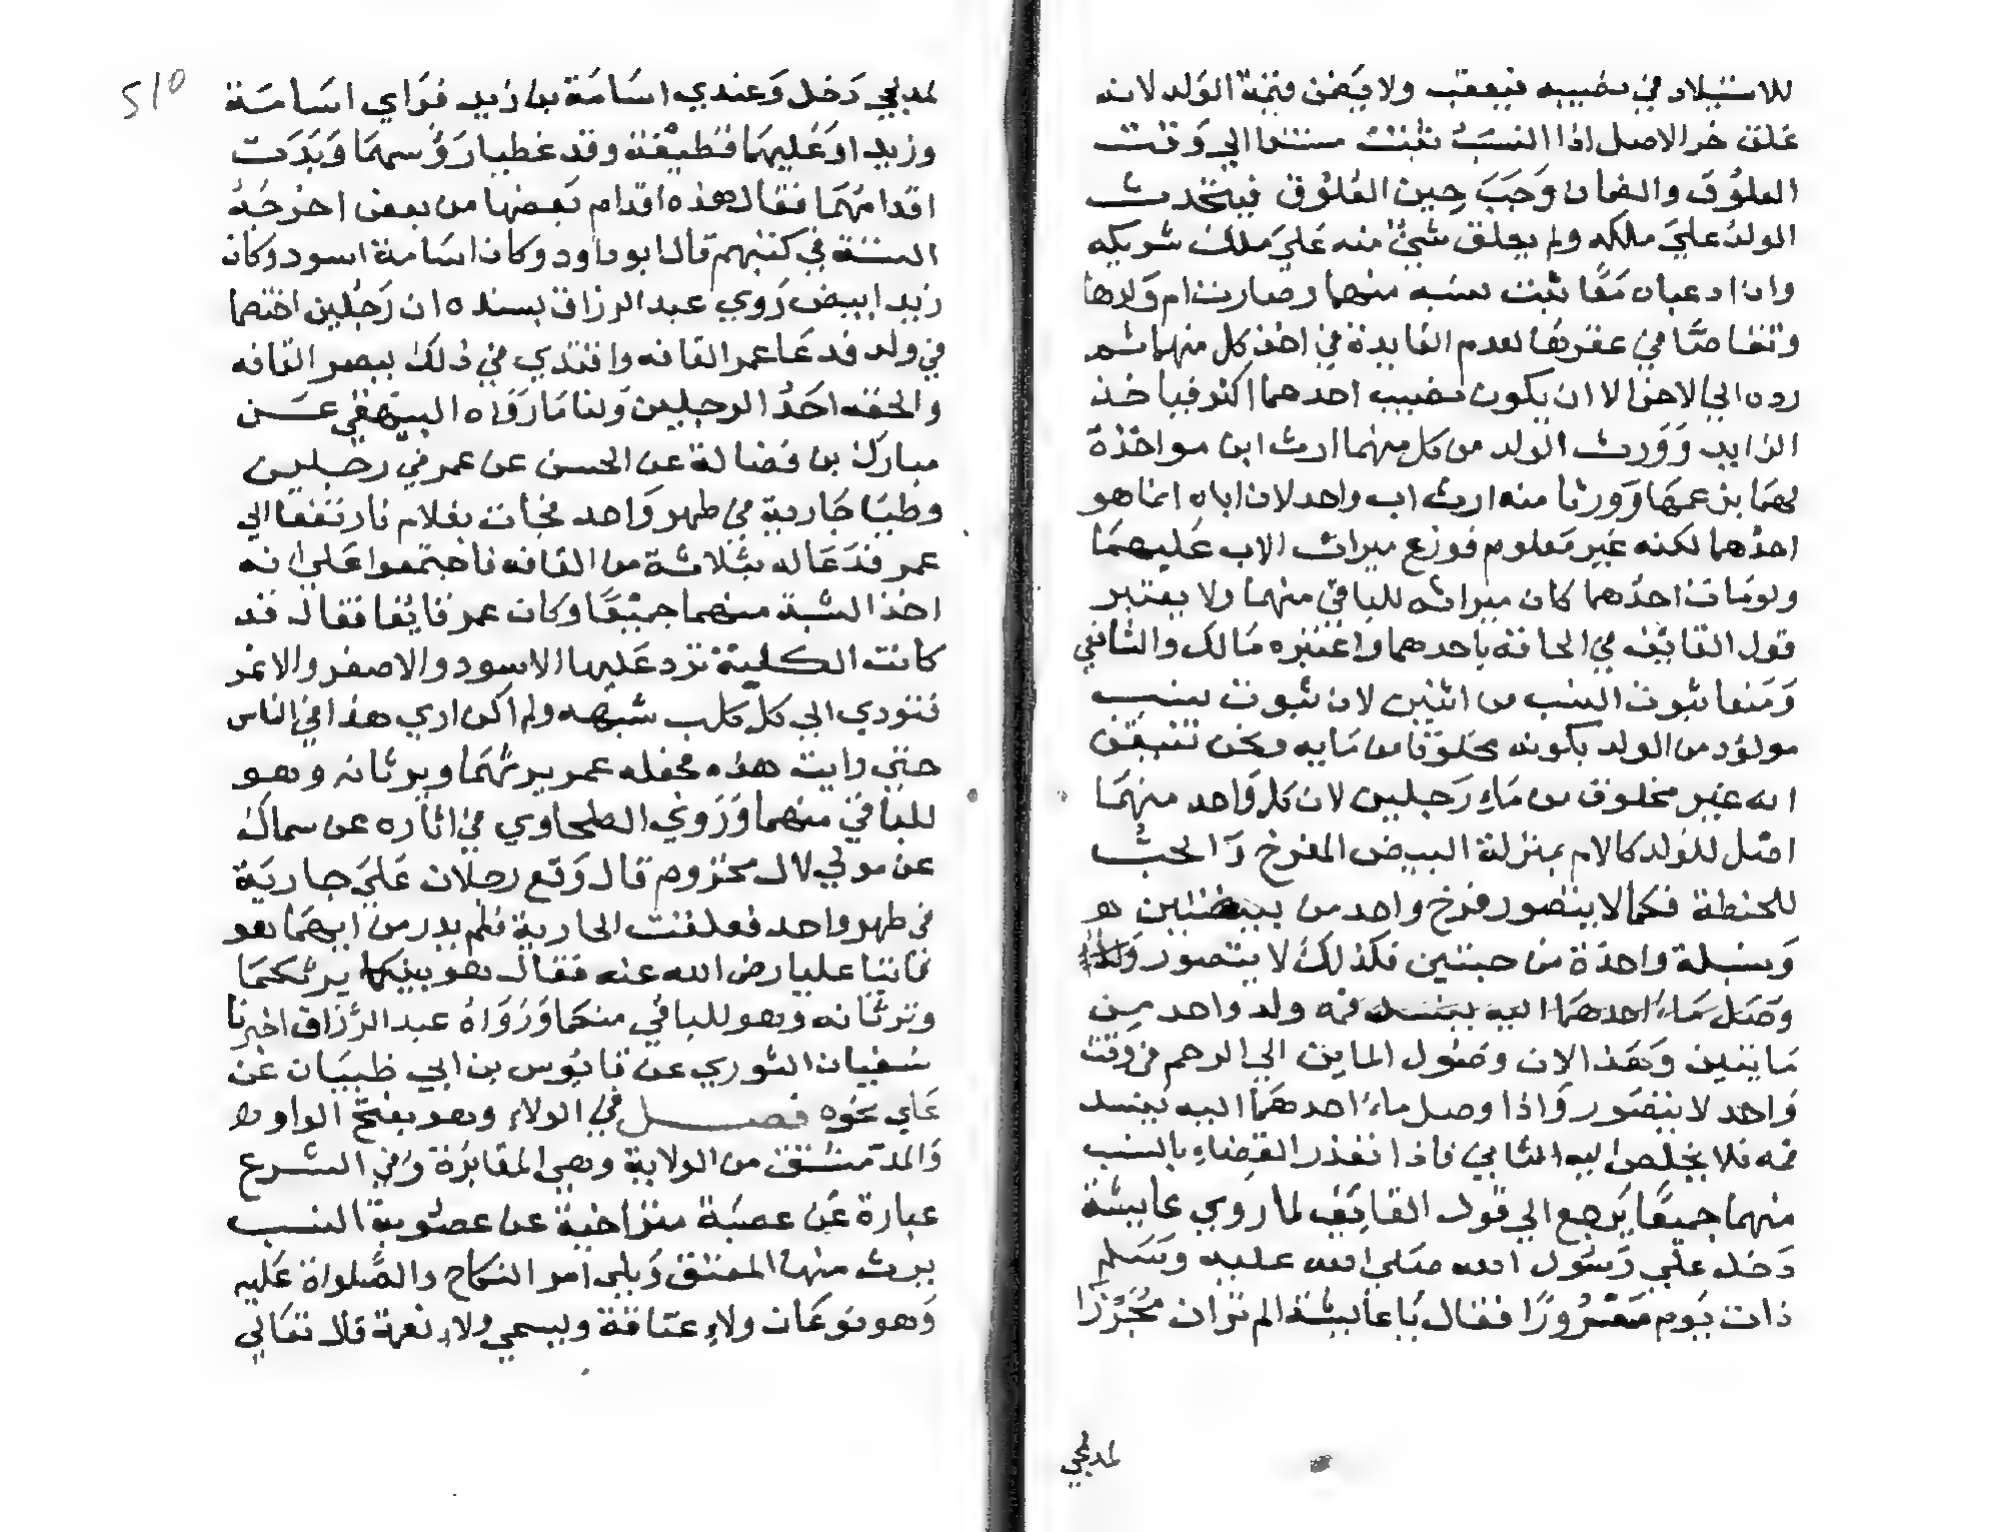 للاستيلاد في نصيبه نيعقب ولا يضمن قيمة الولد لانه
علق حر الاصل اذا النسب تثبت مستندا الي وقت
العلوق والضمان وَجَبَ حين العُلوق فيتحدث
الولد عليَ ملكه ولم يعلق شيئ منه عَليَ ملك شريكه
واذا ادعياه مَعًا ثبت نسبه منهما وصارت ام وَلدهما
وتقاصّا في عقرها لعدم الفايدة في اخذ كل منهما ثم
رده الي الاخر الا ان يكون نصيب احدهما اكثر فياخذ
الزايد وَوَرث الولد من كل منهما ارث ابن مواخذة
لهمَا بزعمهَا وَورثا منه ارث اب واحد لان اباه انما هو
احدُهما لكنه غير مَعلوم فوزع ميراث الاب عَليهمَا
ولو مَات احدُهما كان ميراثه للباقي منهما ولا يعتبر
قول القايف في الحاقه باحدهما واعتبره مَالك والشافعي
وَمنعا ثبوت النسب من اثنين لان ثبوت نسب
مولود من الولد بكونه مخلوقا من مَايه ونحن نتيقن
انه غير مخلوق من مَاءِ رَجلين لان كل وَاحد منهمَا
اصل للوَلد كالام بمنزلة البيض المفرخ وَالحب
للحنطة فكما لا يتصور فرخ واحد من بيضتين هو
وَسنبلة واحدَة من حبتين فكذلك لا يتصور
وَصَل مَاءُ احدهمَا اليه ينسد فمه ولد واحد من
مَايين وَهَذا لان وصُول الماين الي الرحم في وقت
وَاحد لا يتصَور وَاذا وصل ماءُ احدهمَا اليه ينسد
فمه فلا يخلص اليه الثاني فاذا تعذر القضاءِ بالنسب
منهما جميعًا يَرجع الي قول القايَف لما روي عايشة
دَخل علي رَسُول الله صَلي الله عليه وسَلم
ذات يَوم مَسْرُورًا فقال يَا عايشة الم تران مُجَزّزًا
لمدلجي
510
لمدلجي دَخل وَعندي اسَامَة بن زيد فرَاي اسَامَة
وزيد اوَعَليهمَا قطيْفة وقد غطيا رَؤُسهمَا وَبَدَت
اقدامُهمَا فقال هذه اقدام بَعضها من بعض اخرجَهُ
الستة في كتبهم قال ابو داود وكان اسَامة اسود وَكان
زيد ابيض رَوي عبد الرزاق بسنده ان رَجُلين اختصما
في ولد فدعَا عمر القافه واقتدي في ذلك ببصر القافه
والحقه احَدُ الرجلين وَلنا مَا رَوَاه البيهقي عن
مبارك بن فضالة عن الحسن عن عمر في رجلين
وطيَا جَارية في طهر وَاحد فجات بغلام فارتفعا الي
عمر فدَعَا له بثلاثة من القافه فاجتمعوا عَليٰ انه
اخذ الشبة منهما جميْعًا وكان عمر قايُفا فقال قد
كانت الكلبة تزد عَليها الاسود والاصفر والانمر
فتودي الي كل كلب شبهه ولم اكن اري هذا في الناس
حتي رايت هذه فجعله عمر يرثهُمَا ويرثانه وهو
للباقي منهما وَرَوي الطحاوي في اثاره عن سماك
عن مولي لال مخزوم قال وَقع رجلان عَليَ جاريَة
في طهر واحد فعلقت الجارية فلم يدر من ايهمَا هو
فاتيا عليا رضي الله عنه فقال هو بينكما يرثكمَا
وترثانه وَهو للباقي منكمَا وَرَوَاهُ عبد الرّزاق اخبرنا
سُفيان الثوري عن قابُوس بن ابي ظبيَان عَن
عَلي نحوَه فصل في الولاءِ وهو بفتح الواو
وَالمدّ مشتق من الولاية وهي المقابَرة وَفي الشرع
عبارة عَن عصبَة متراخية عن عصُوبة النسب
يرث منها المعتق وَيلي امر النكاح والصَّلواة عَليه
وَهو نوعَان ولاءِ عتاقة ويسمي ولاءِ نعمة قال تعَالي